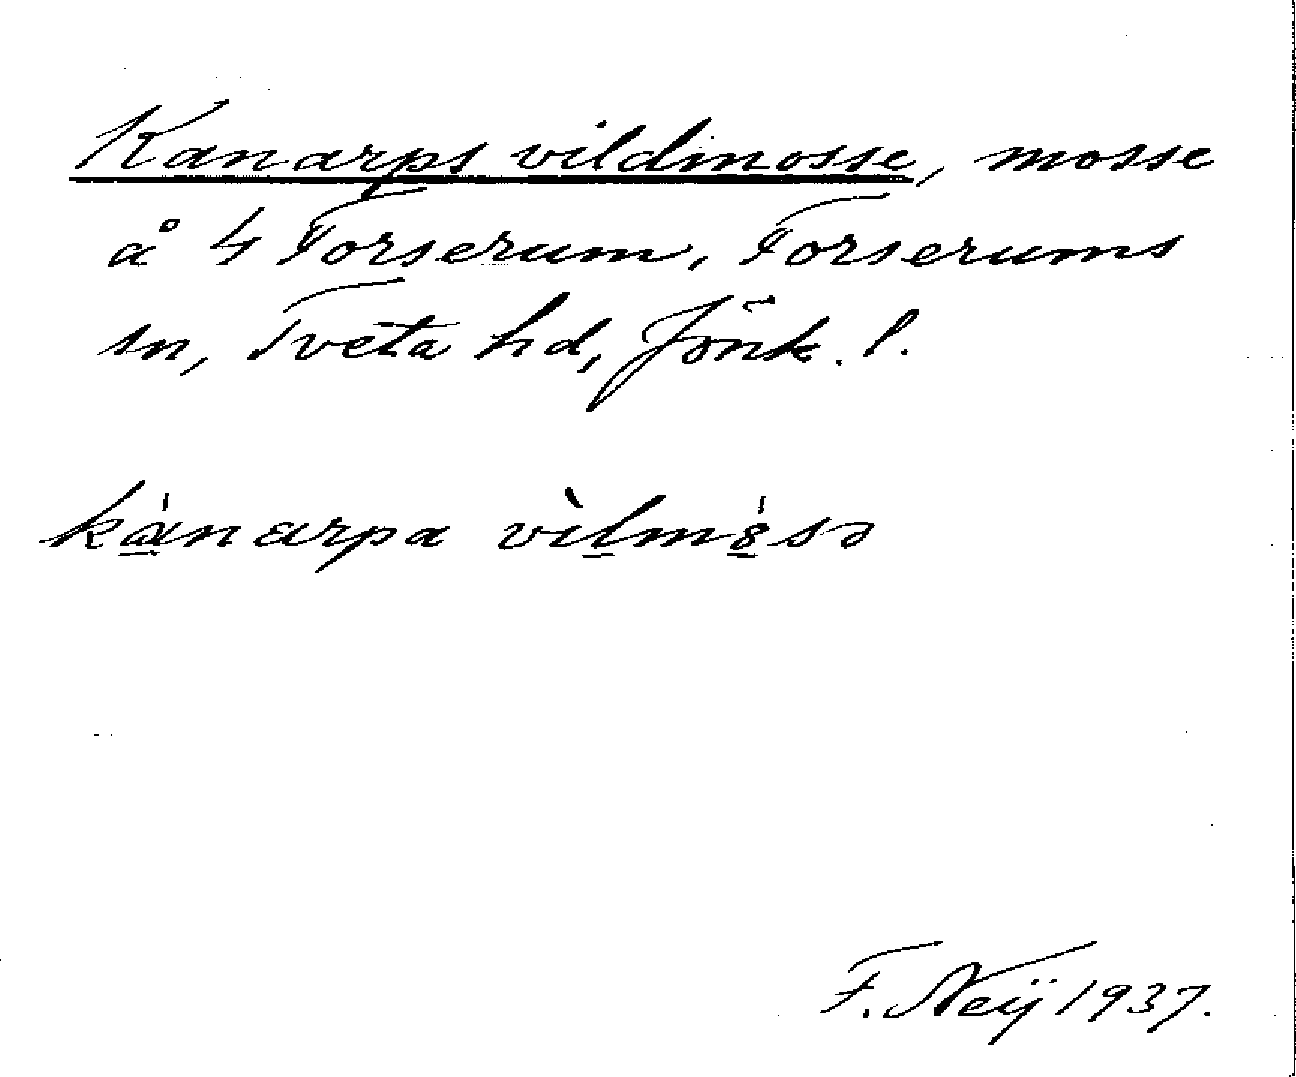 Kanarps vildmosse, mosse
å 4 Forserum, Forserums
sn, Tveta hd, Jönk. l.
kànarpa vìlmòsə
F. Neij 1937.